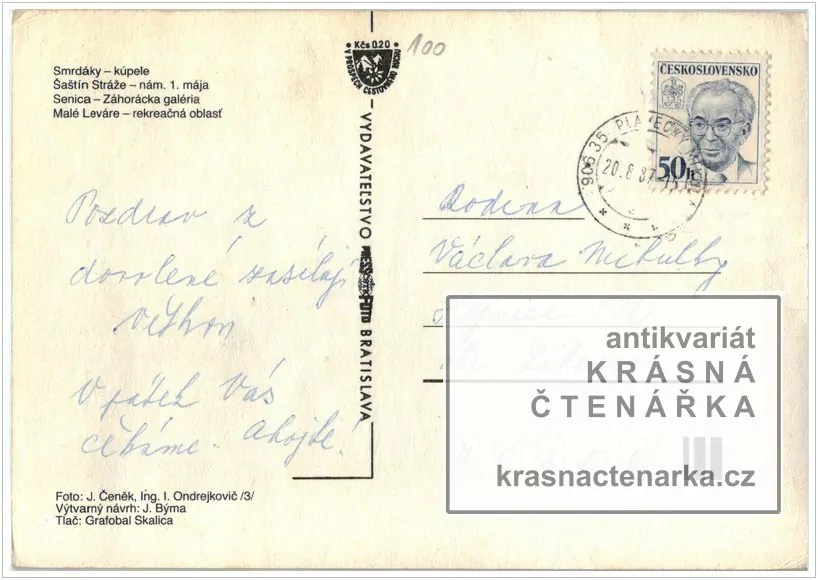 Smrdáky – kúpele
Šaštín Stráže – nám. 1. mája
Senica – Záhorácka galéria
Malé Leváre – rekreačná oblasť
Kčs 0.20
V PROSPECH CESTOVNÉHO RUCHU
100
ČESKOSLOVENSKO
50h
906 35
20.8.87
VYDAVATEĽSTVO PRESSFOTO BRATISLAVA
Pozdrav z
dovolené zasílají
V pátek Vás
čekáme. Ahojte!
Rodina
Václava Mikulky
antikvariát
KRÁSNÁ
ČTENÁŘKA
krasnactenarka.cz
Foto: J. Čeněk, Ing. I. Ondrejkovič /3/
Výtvarný návrh: J. Býma
Tlač: Grafobal Skalica